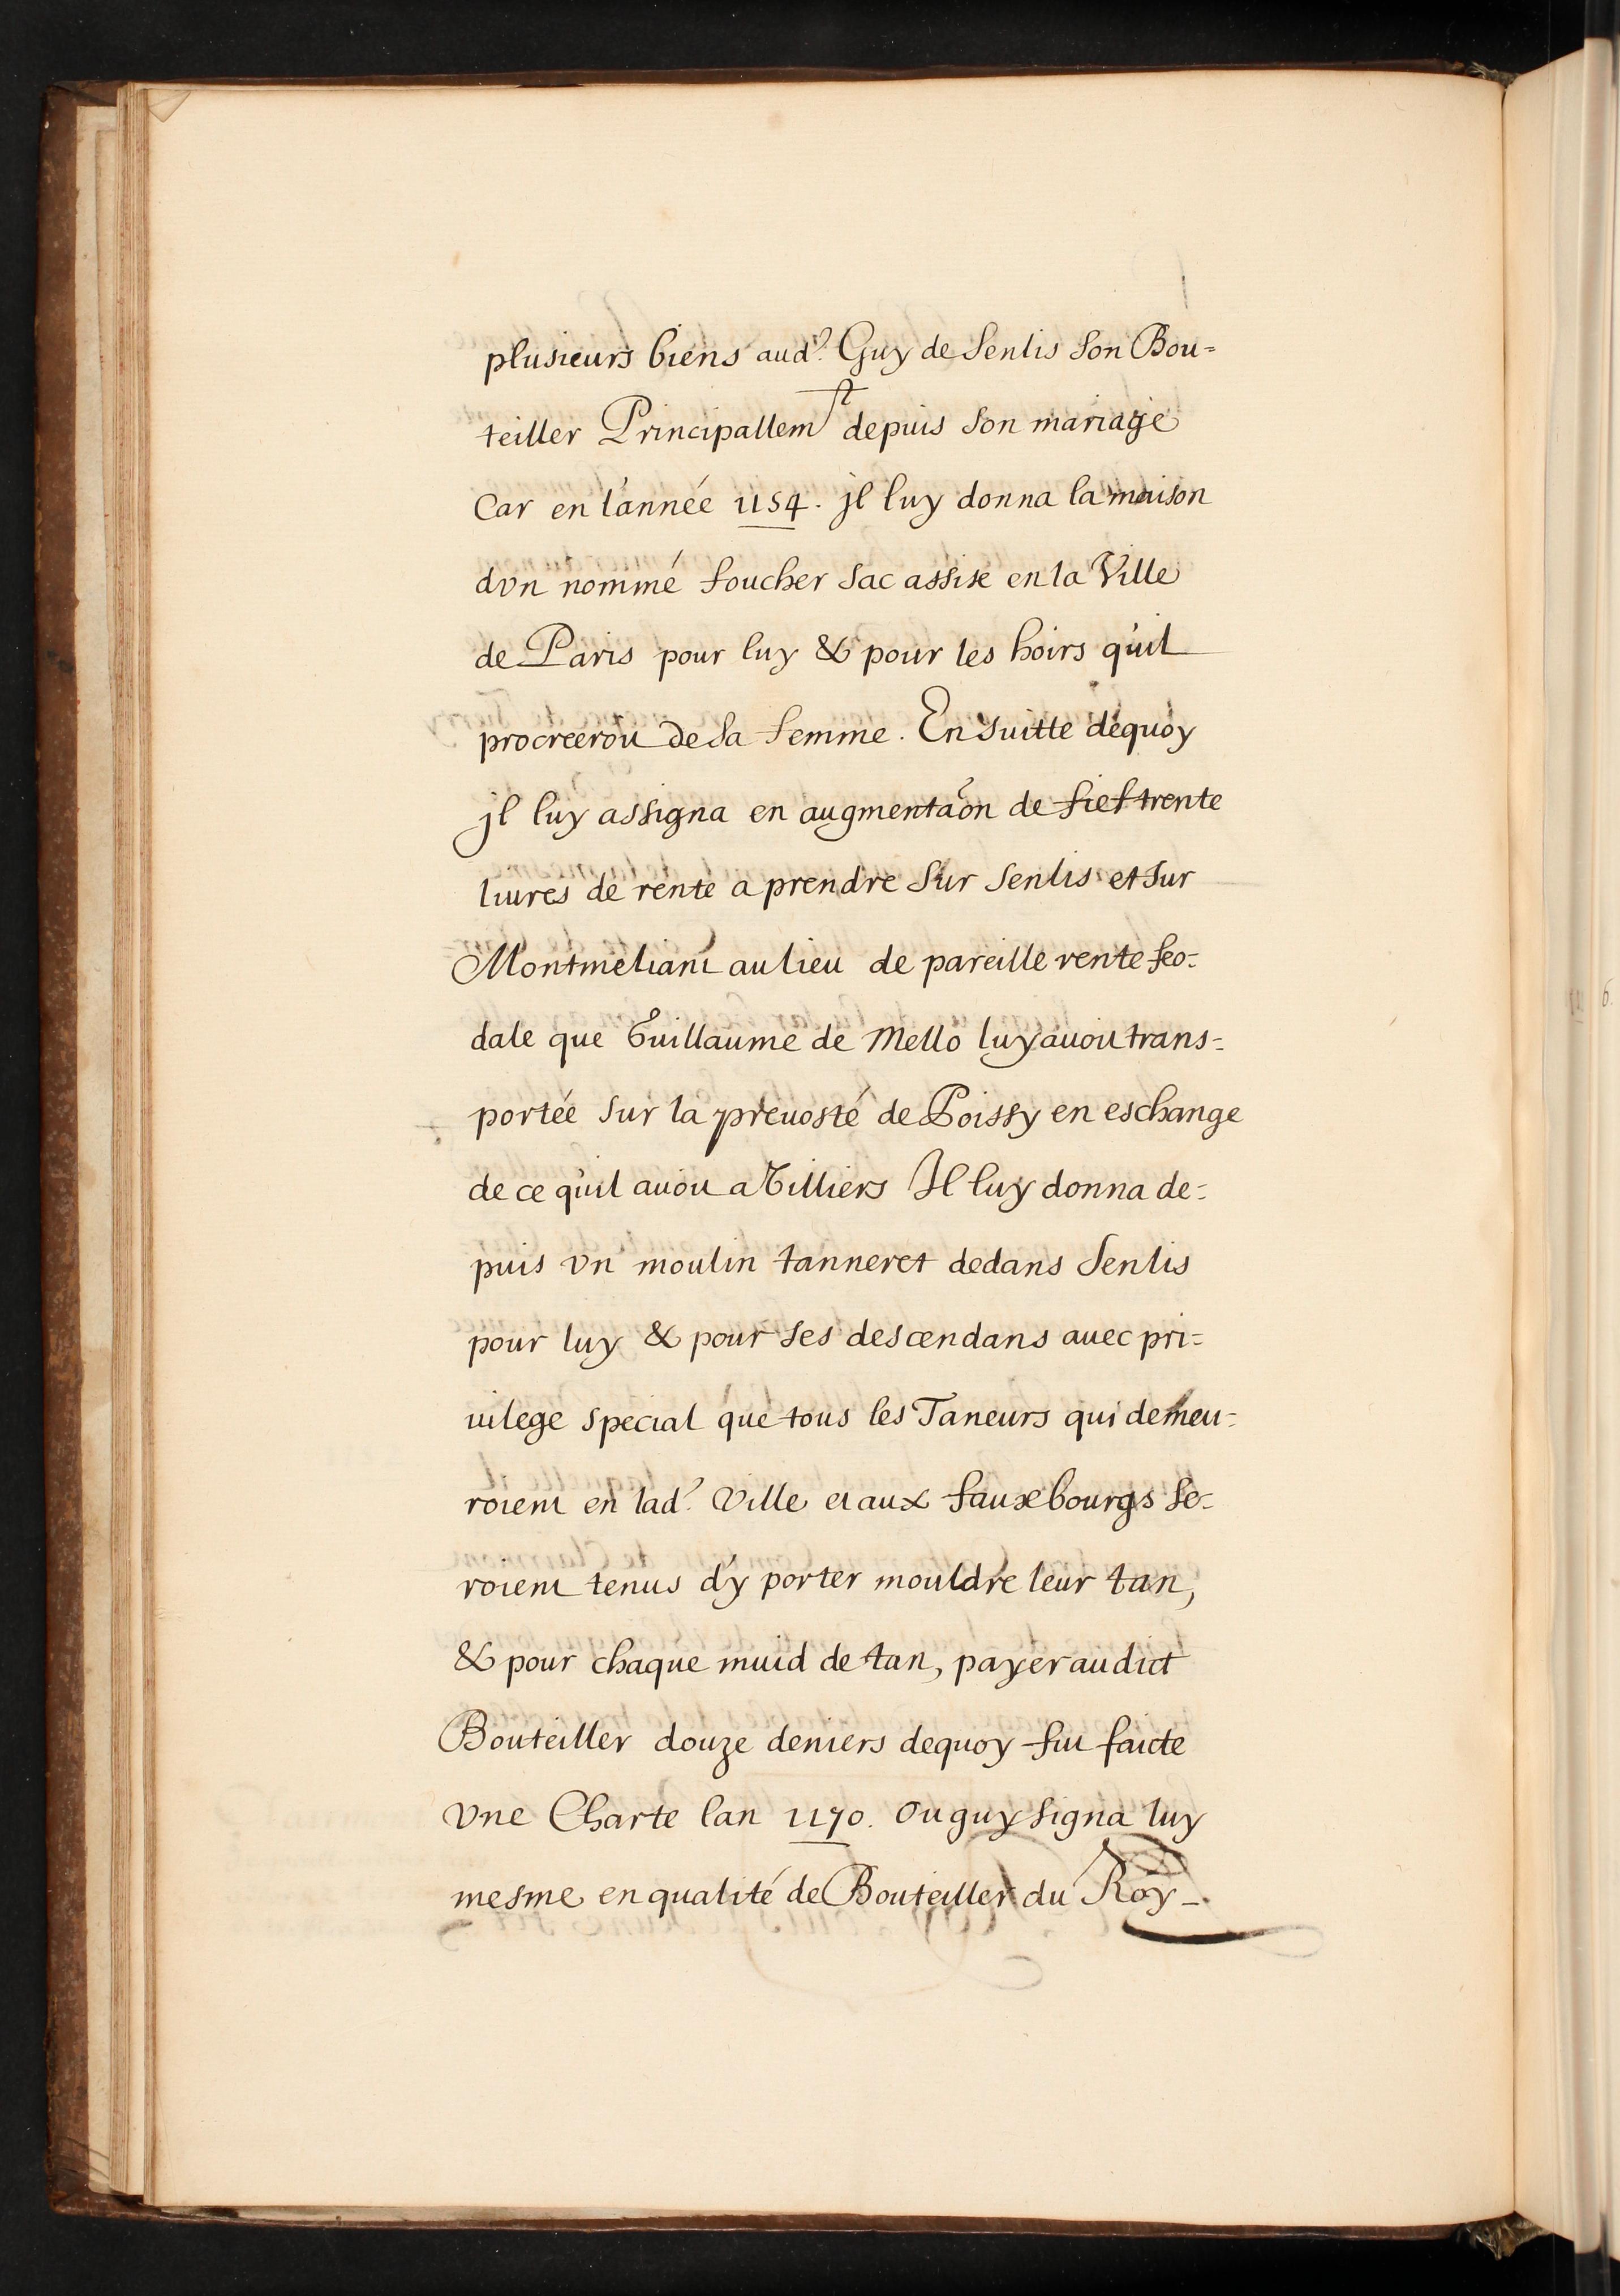 plusieurs biens aud.? Guy de Senlis son Bou=
teiller Principallemt depuis son mariage
Car en l'année 1154. jl luy donna la maison
dvn nommé foucher Sac assise en la Ville
de Paris pour luy & pour les hoirs quil
procreeroit de sa femme. En suitte dequoy
jl luy assigna en augmentaon de fief trente
liures de rente a prendre sur Senlis et sur
Montmeliant au lieu de pareille rente feo=
dale que Guillaume de Mello luy auoit trans=
portée sur la preuosté de Poissy en eschange
de ce quil auoit a Tilliers Il luy donna de=
puis vn moulin tanneret dedans Senlis
pour luy & pour ses descendans auec pri=
uilege special que tous les Taneurs qui demeu=
roient en lad.? Ville et aux fauxbourgs se=
roient tenus d'y porter mouldre leur tan,
& pour chaque muid de tan, payer audict
Bouteiller douze deniers dequoy fut faicte
vne Charte lan 1170. ou guy signa luy
mesme en qualité de Bouteiller du Roy_.